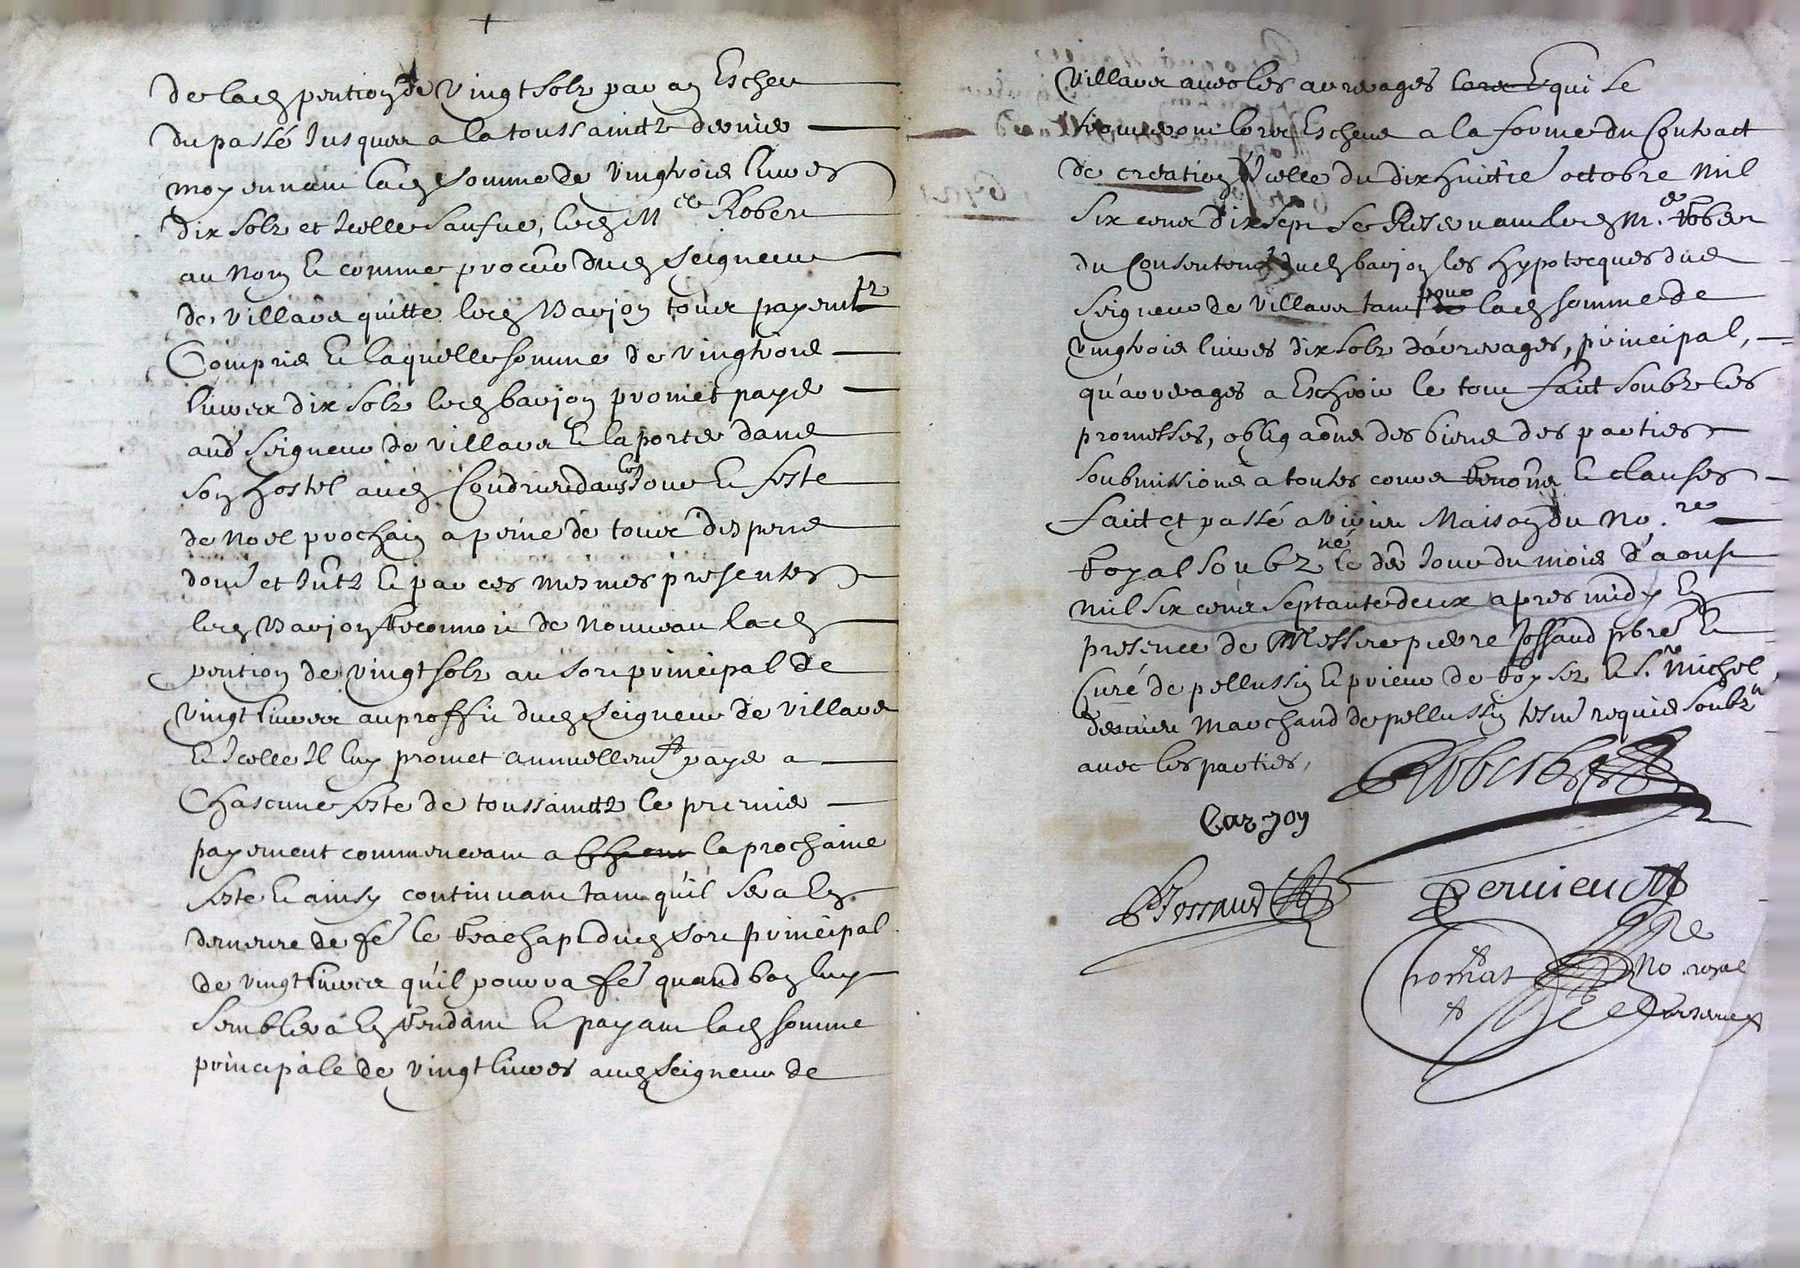 de lad pention de vingt solz par an Escheu
du passé Jusques a la toussainctz dernier
moyennant lad somme de vingtrois livres
dix solz et Icelle saufve, led Mre Robert
au Nom et comme proceur dud Seigneur
de Villars quitte led Barjon tous payemtz
Compris et laquelle somme de vingtrois
livres dix solz led barjon promet payer
aud Seigneur de Villars et la porter dans
son hostel aud Condrieu dans le Jour et feste
de Noel prochain a peine de tous despens
dom et Intz et par ces mesmes presentes
led Barjon Reconnoit de Nouveau lad
pention de vingt solz au sort principal de
vingt livres au proffit dud Seigneur de Villars
et Icelle Il luy promet annuellemt payer a
Chascune feste de toussainctz le premier
payement commenceant a la prochaine
feste et ainsy continuant tant qu'il sera en
demeure de fe le Reachapt dud sort principal
de vingt livres qu'il pourra fe quand bon luy
semblera En Rendant et payant lad somme
principale de vingt livres aud Seigneur de
Villars avec les arrerages qui se
trouveront lors Escheus a la forme du Contract
de creation d'Icelle du dix huictie octobre Mil
six cens dix sept se Reservant led Mre Robert
du Consentemt dud barjon les hypotecques dud
Seigneur de Villars tant pour lad somme de
vingtrois livres dix solz d'arrerages, principal,
qu'arrerages a Eschoir le tout faict soubz les
promesses, obligaõns des biens des parties
soubmissions a toutes cours Renõns et clauses
faict et passé a Maison du No.re
Royal soubzné le der Jour du mois d'aoust
mil six cens septante deux apres midy En
presence de Messire pierre Jossaud pbre et
Curé de pellussin et prieur de Roysez et Sr Michel
dervieu Marchand de pellussin tesm requis soubzn
avec les parties,
Robert
Barjon
PJossaud
Dervieu
Chomat No. royal